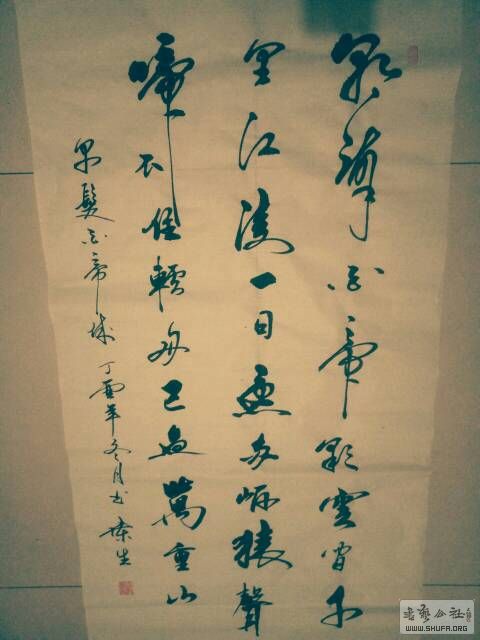 朝辭白帝彩雲間千
里江陵一日還两岸猿聲
啼不住輕舟已過萬重山
早髮白帝城 丁酉年冬月书 生
书艺公社
WWW.SHUFA.ORG